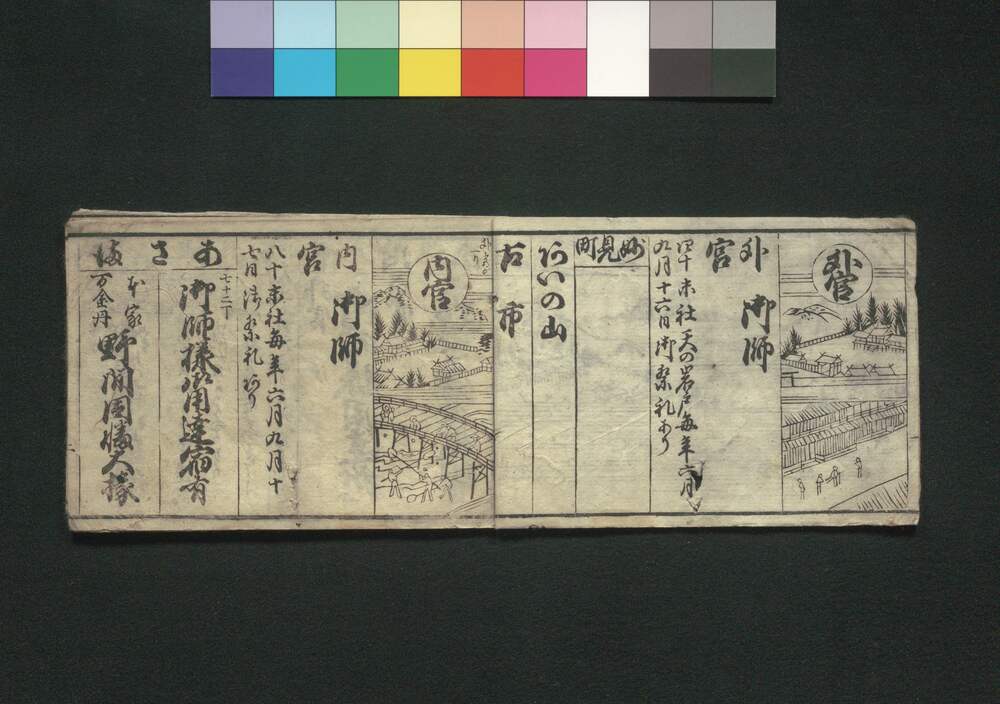 外宮
外宮
御師
四十末社天の岩戸毎年六月
九月十六日御祭礼あり
妙見町
あいの山
古市
内宮
内宮
御師
八十末社毎年六月九月十
七日御祭礼あり
あさま
七十二丁
御師様御用達宿有
本家
万金丹
野間因幡大掾